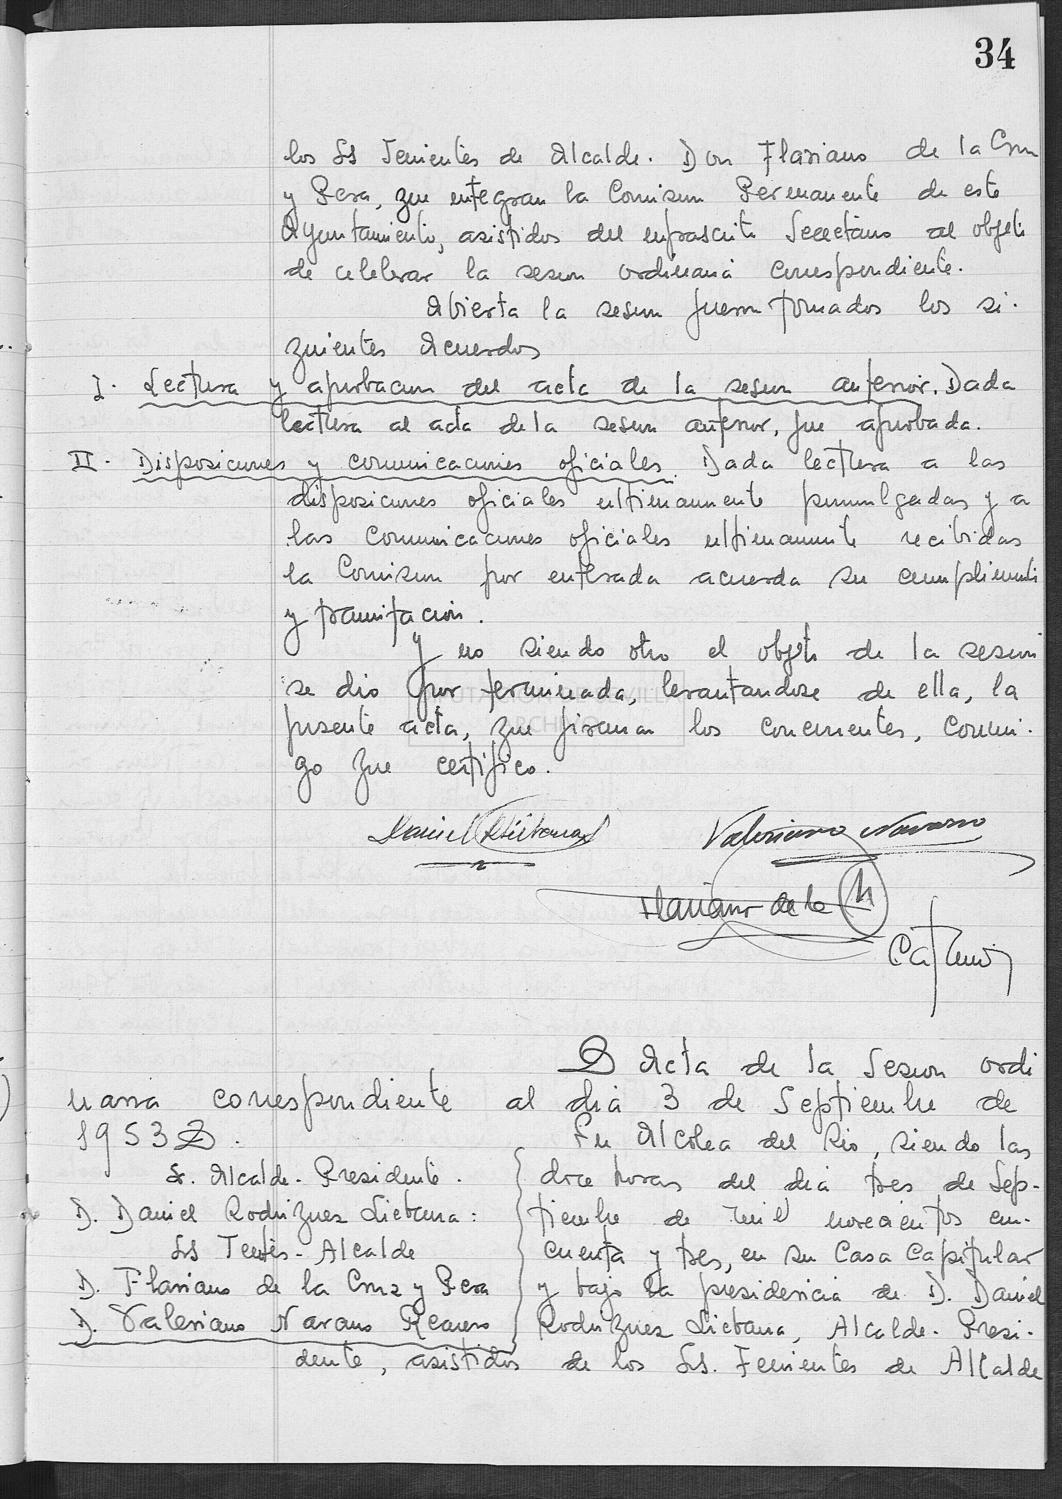 34
los SS Tenientes de Alcalde. Don Flaviano de la Cruz
y Pera, que integran la Comision Permanente de este
Ayuntamiento, asistidos del infrascrito Secretario al objeto
de celebrar la sesion ordinaria correspondiente.
Abierta la sesion fueron tomados los si-
guientes Acuerdos
I. Lectura y aprobacion del acta de la sesion anterior. Dada
lectura al acta de la sesion anterior, fue aprobada.
II. Disposiciones y comunicaciones oficiales. Dada lectura a las
disposiciones oficiales ultimamente promulgadas y a
las comunicaciones oficiales ultimamente recibidas
la Comision por enterada acuerda su cumplimiento
y tramitacion.
Y no siendo otro el objeto de la sesion
se dio por terminada, levantandose de ella, la
presente acta, que firman los concurrentes, conmi-
go que certifico.
Daniel Rliebana
Valeriano Navarro
Flaviano de la
Acta de la Sesion ordi
naria correspondiente al dia 3 de Septiembre de
1953.
En Alcolea del Rio, siendo las
Sr. Alcalde-Presidente.
doce horas del dia tres de Sep-
D. Daniel Rodriguez Liebana:
tiembre de mil novecientos cin-
SS Tentes-Alcalde
cuenta y tres, en su Casa Capitular
D. Flaviano de la Cruz y Pera
y bajo la presidencia de D. Daniel
D. Valeriano Navarro Recuero
Rodriguez Liebana, Alcalde-Presi-
dente, asistidos de los SS. Tenientes de Alcalde